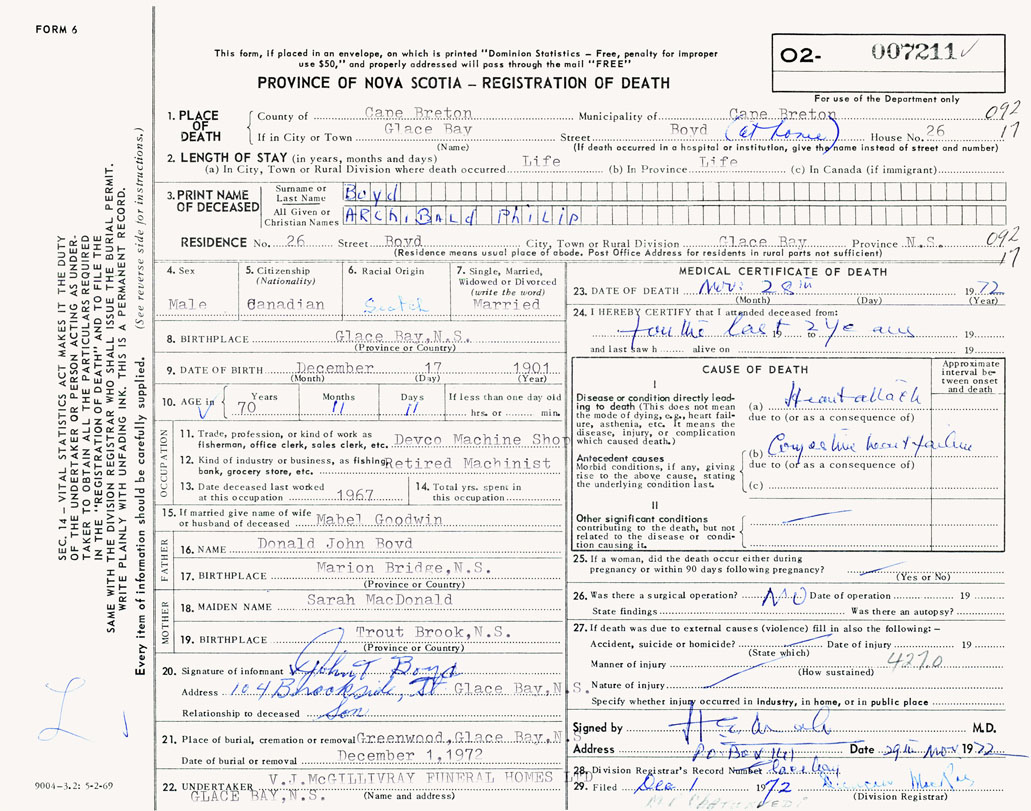 FORM 6
This form, if placed in an envelope, on which is printed "Dominion Statistics – Free, penalty for improper
use $50," and properly addressed will pass through the mail "FREE"
PROVINCE OF NOVA SCOTIA – REGISTRATION OF DEATH
02- 007211
For use of the Department only
1. PLACE OF DEATH
County of Cape Breton Municipality of Cape Breton 092
If in City or Town Glace Bay Street Boyd (at home) House No. 26 17
(Name) (If death occurred in a hospital or institution, give the name instead of street and number)
2. LENGTH OF STAY (in years, months and days)
(a) In City, Town or Rural Division where death occurred Life (b) In Province Life (c) In Canada (if immigrant)
3. PRINT NAME OF DECEASED
Surname or Last Name Boyd
All Given or Christian Names ARCHIBALD PHILIP
RESIDENCE No. 26 Street Boyd City, Town or Rural Division Glace Bay Province N.S. 092
(Residence means usual place of abode. Post Office Address for residents in rural parts not sufficient) 17
4. Sex
Male
5. Citizenship
(Nationality)
Canadian
6. Racial Origin
Scotch
7. Single, Married,
Widowed or Divorced
(write the word)
Married
8. BIRTHPLACE Glace Bay,N.S.
(Province or Country)
9. DATE OF BIRTH December 17 1901
(Month) (Day) (Year)
10. AGE in Years Months Days If less than one day old
70 11 11 hrs. or min.
OCCUPATION
11. Trade, profession, or kind of work as
fisherman, office clerk, sales clerk, etc. Devco Machine Shop
12. Kind of industry or business, as fishing,
bank, grocery store, etc. Retired Machinist
13. Date deceased last worked
at this occupation 1967
14. Total yrs. spent in
this occupation
15. If married give name of wife
or husband of deceased Mabel Goodwin
FATHER
16. NAME Donald John Boyd
17. BIRTHPLACE Marion Bridge,N.S.
(Province or Country)
MOTHER
18. MAIDEN NAME Sarah MacDonald
19. BIRTHPLACE Trout Brook,N.S.
(Province or Country)
20. Signature of informant John T Boyd
Address 104 Brookside St Glace Bay,N.S.
Relationship to deceased Son
21. Place of burial, cremation or removal Greenwood,Glace Bay,N.S
Date of burial or removal December 1,1972
22. UNDERTAKER V.J.McGILLIVRAY FUNERAL HOMES LTD
GLACE BAY,N.S. (Name and address)
MEDICAL CERTIFICATE OF DEATH
23. DATE OF DEATH Nov. 28th 1972
(Month) (Day) (Year)
24. I HEREBY CERTIFY that I attended deceased from:
for the last 2 years 19 19
and last saw h alive on 19
CAUSE OF DEATH
Approximate
interval be-
tween onset
and death
I
Disease or condition directly lead-
ing to death (This does not mean
the mode of dying, e.g., heart fail-
ure, asthenia, etc. It means the
disease, injury, or complication
which caused death.)
(a) Heart attack
due to (or as a consequence of)
Antecedent causes
Morbid conditions, if any, giving
rise to the above cause, stating
the underlying condition last.
(b) Congestive heart failure
due to (or as a consequence of)
(c)
II
Other significant conditions
contributing to the death, but not
related to the disease or condi-
tion causing it.
25. If a woman, did the death occur either during
pregnancy or within 90 days following pregnancy?
(Yes or No)
26. Was there a surgical operation? NO Date of operation 19
State findings Was there an autopsy?
27. If death was due to external causes (violence) fill in also the following:–
Accident, suicide or homicide? Date of injury 19
(State which)
Manner of injury 4270
(How sustained)
Nature of injury
Specify whether injury occurred in industry, in home, or in public place
Signed by M.D.
Address PO Box 141 Date 29th Nov 1972
Glace Bay
28. Division Registrar's Record Number
29. Filed Dec 1 1972
(Division Registrar)
SEC. 14 – VITAL STATISTICS ACT MAKES IT THE DUTY
OF THE UNDERTAKER OR PERSON ACTING AS UNDER-
TAKER TO OBTAIN ALL THE PARTICULARS REQUIRED
IN THE "REGISTRATION OF DEATH" AND TO FILE THE
SAME WITH THE DIVISION REGISTRAR WHO SHALL ISSUE THE BURIAL PERMIT.
WRITE PLAINLY WITH UNFADING INK. THIS IS A PERMANENT RECORD.
Every item of information should be carefully supplied. (See reverse side for instructions.)
9004–3.2: 5-2-69